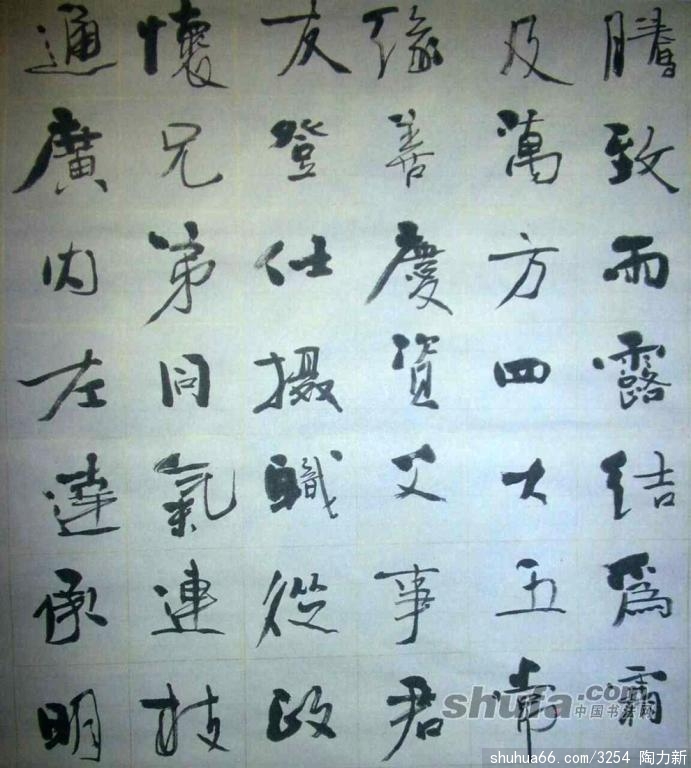 騰致雨露結爲霜
及萬方四大五常
緣善慶資父事君
友登仕摄職從政
懷兄弟同氣連枝
通廣内左達承明
shufa.com
中国书法网
shuhua66.com/3254 陶力新